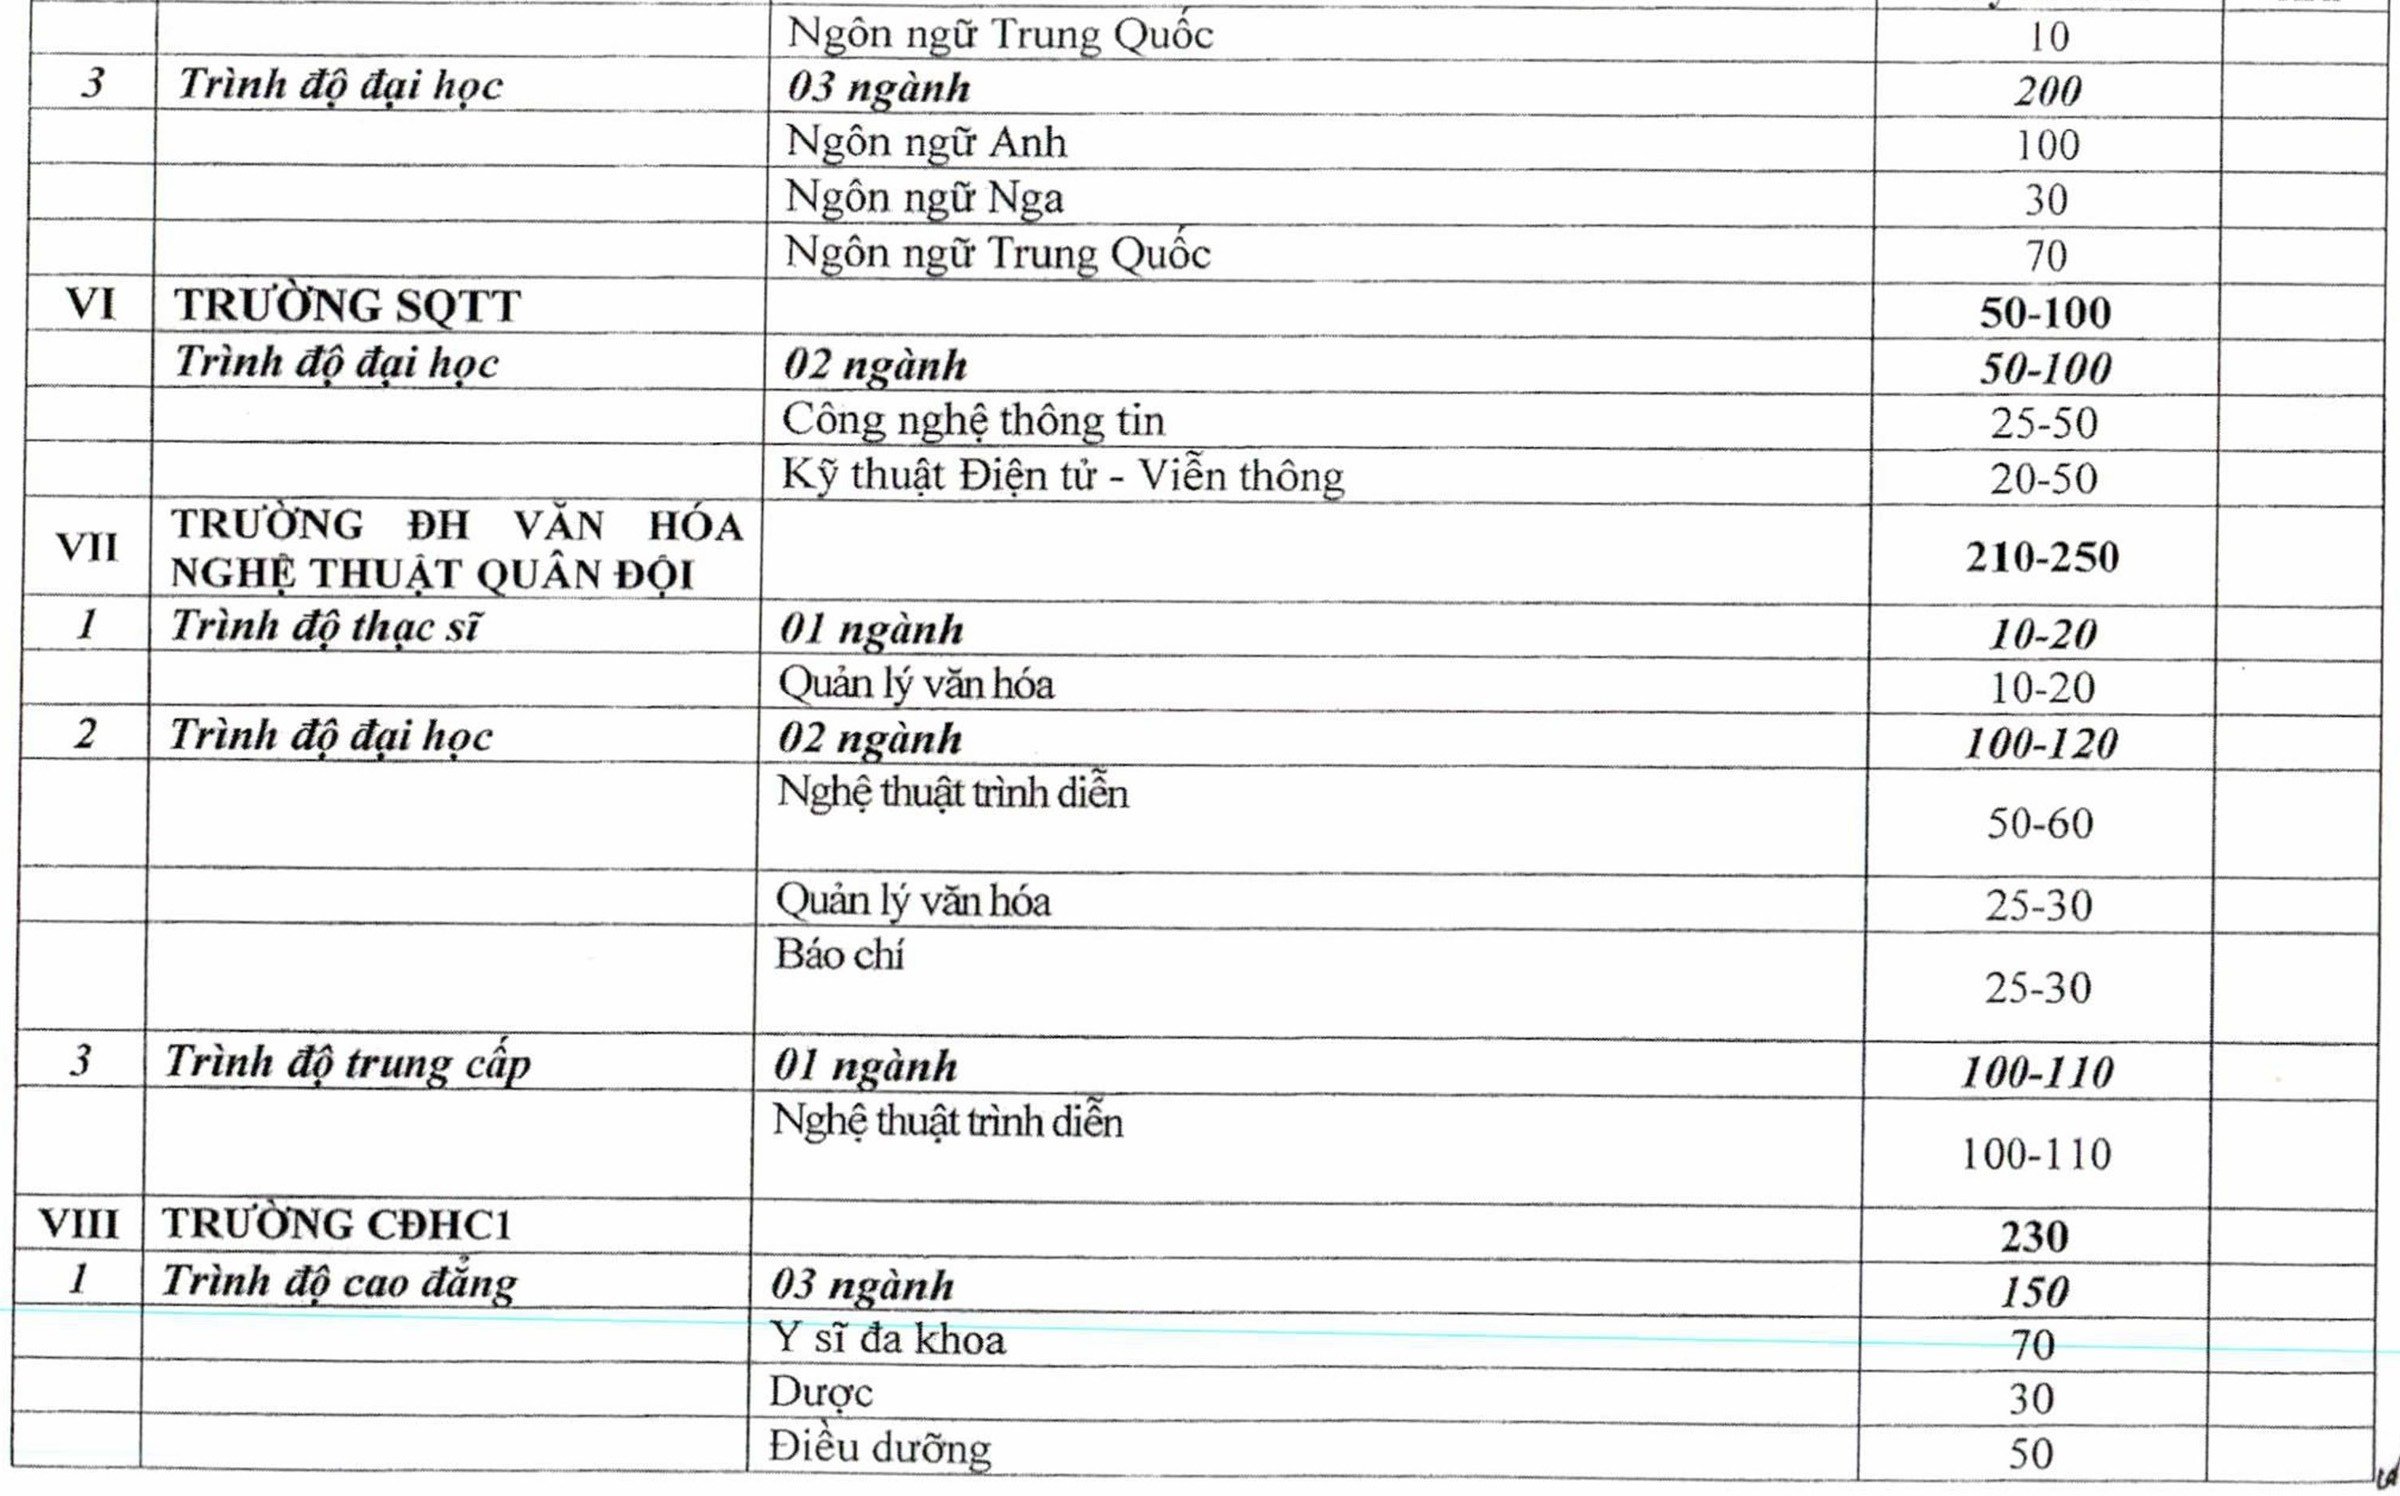 Ngôn ngữ Trung Quốc 10
3 Trình độ đại học 03 ngành 200
Ngôn ngữ Anh 100
Ngôn ngữ Nga 30
Ngôn ngữ Trung Quốc 70
VI TRƯỜNG SQTT 50-100
Trình độ đại học 02 ngành 50-100
Công nghệ thông tin 25-50
Kỹ thuật Điện tử - Viễn thông 20-50
VII TRƯỜNG ĐH VĂN HÓA
NGHỆ THUẬT QUÂN ĐỘI 210-250
1 Trình độ thạc sĩ 01 ngành 10-20
Quản lý văn hóa 10-20
2 Trình độ đại học 02 ngành 100-120
Nghệ thuật trình diễn 50-60
Quản lý văn hóa 25-30
Báo chí 25-30
3 Trình độ trung cấp 01 ngành 100-110
Nghệ thuật trình diễn 100-110
VIII TRƯỜNG CĐHC1 230
1 Trình độ cao đẳng 03 ngành 150
Y sĩ đa khoa 70
Dược 30
Điều dưỡng 50